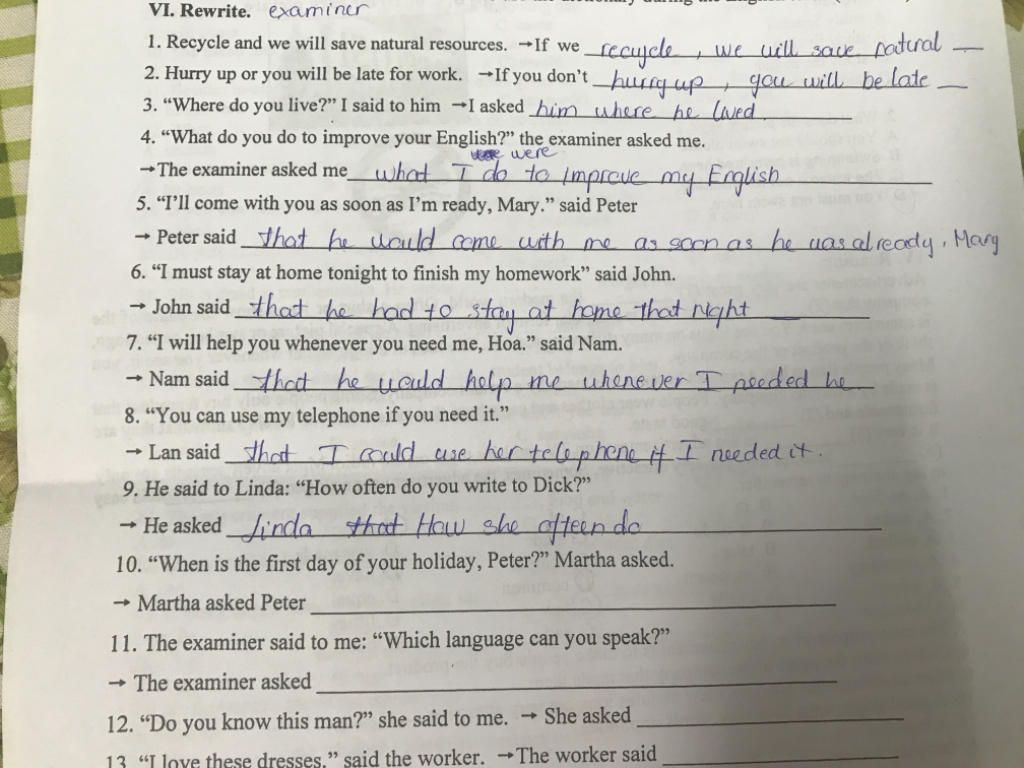 VI. Rewrite. examiner
1. Recycle and we will save natural resources. →If we recycle, we will save natural
2. Hurry up or you will be late for work. →If you don't hurry up, you will be late
3. "Where do you live?" I said to him →I asked him where he lived.
4. "What do you do to improve your English?" the examiner asked me.
were
→The examiner asked me what I do to improve my English
5. "I'll come with you as soon as I'm ready, Mary." said Peter
→ Peter said that he would come with me as soon as he was already, Mary
6. "I must stay at home tonight to finish my homework" said John.
→ John said that he had to stay at home that night
7. "I will help you whenever you need me, Hoa." said Nam.
→ Nam said that he would help me whenever I needed he
8. "You can use my telephone if you need it."
→ Lan said that I could use her telephone if I needed it.
9. He said to Linda: "How often do you write to Dick?"
→ He asked Linda that How she ofteen do
10. "When is the first day of your holiday, Peter?" Martha asked.
→ Martha asked Peter
11. The examiner said to me: "Which language can you speak?"
→ The examiner asked
12. "Do you know this man?" she said to me. → She asked
13. "I love these dresses." said the worker. →The worker said